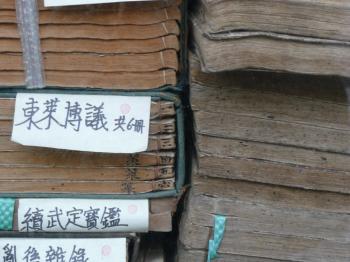 東萊博議 共6冊
續武定寶鑑
亂後雜錄